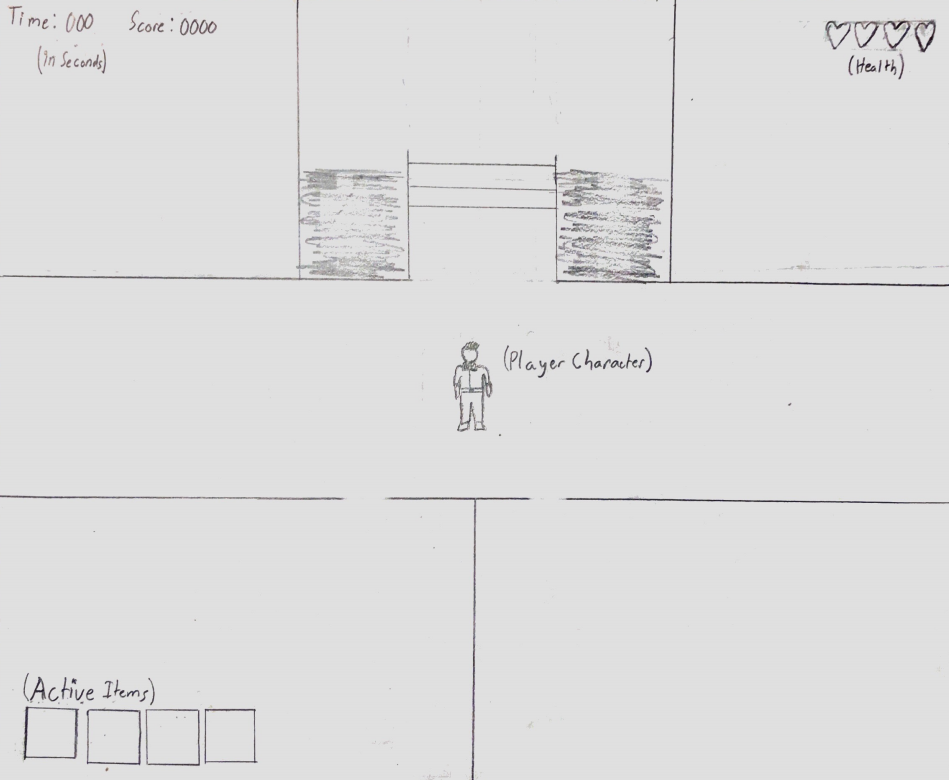 Time: 000 Score: 0000
(In Seconds)
(Health)
(Player Character)
(Active Items)